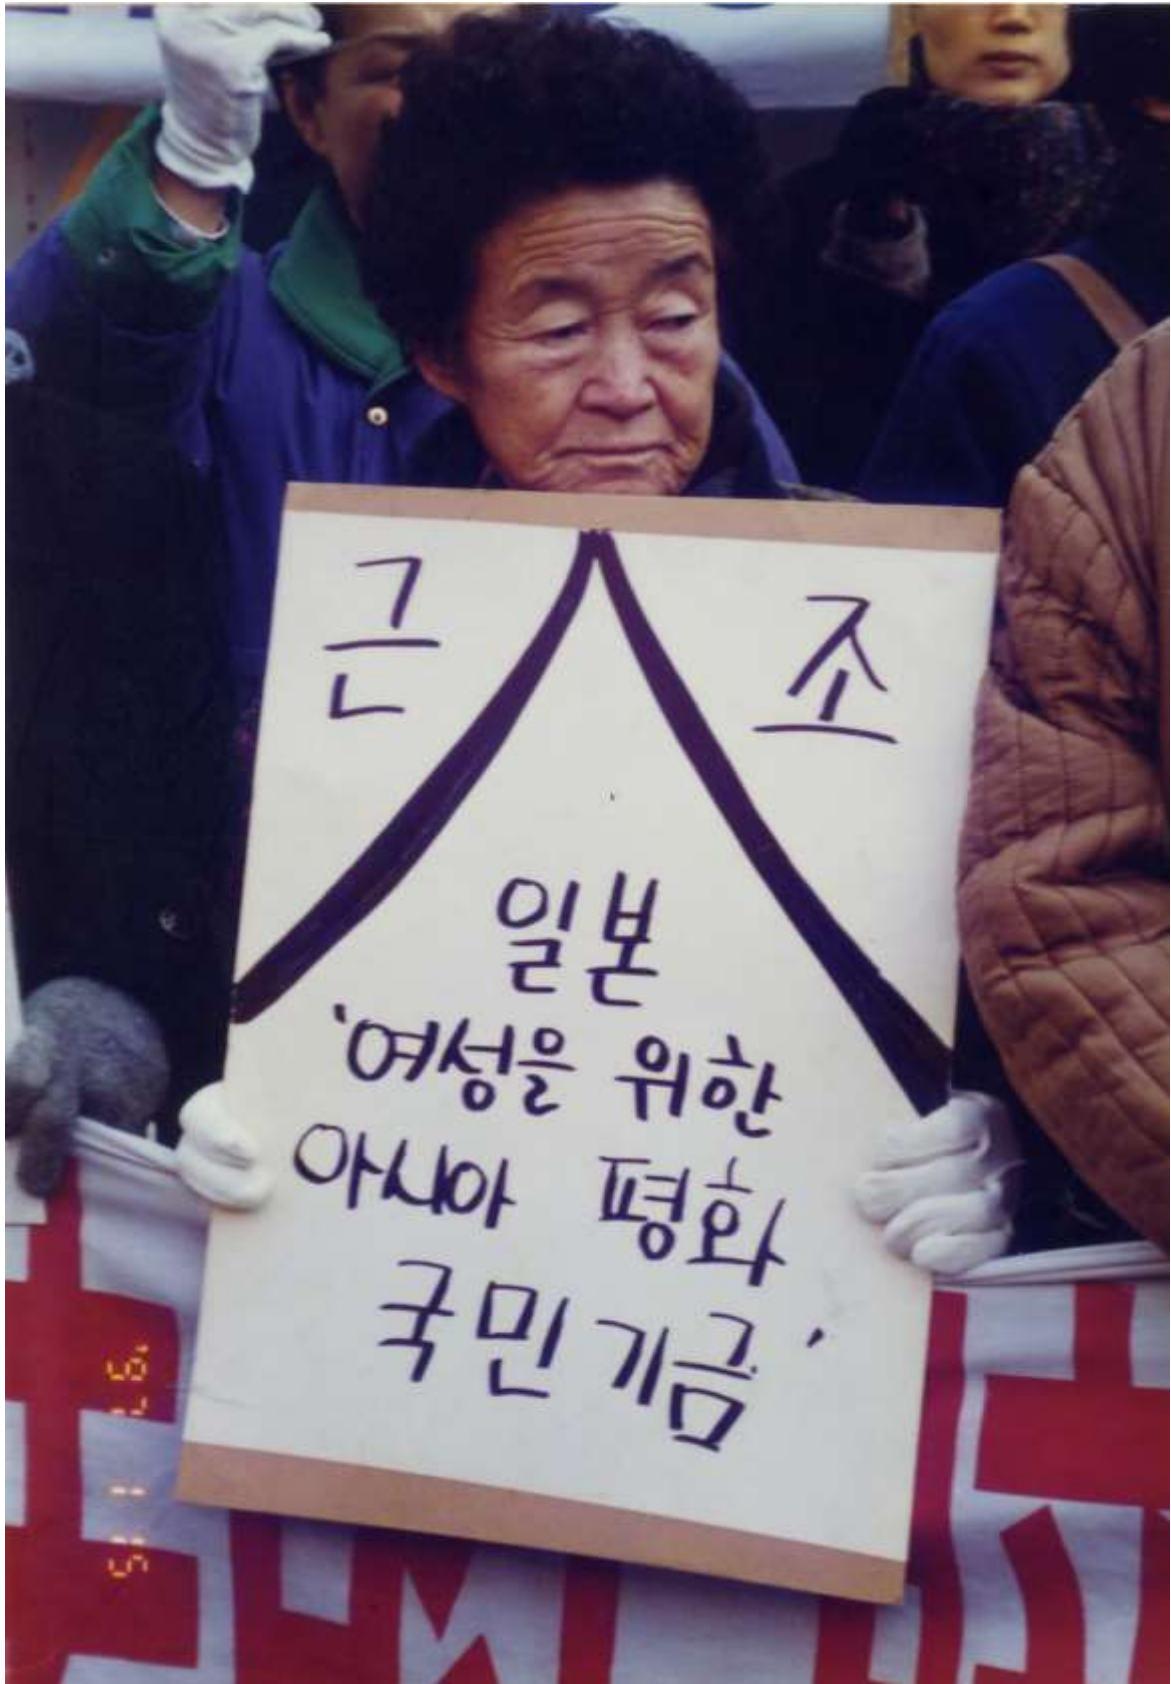 근 조
일본
'여성을 위한
아시아 평화
국민기금'